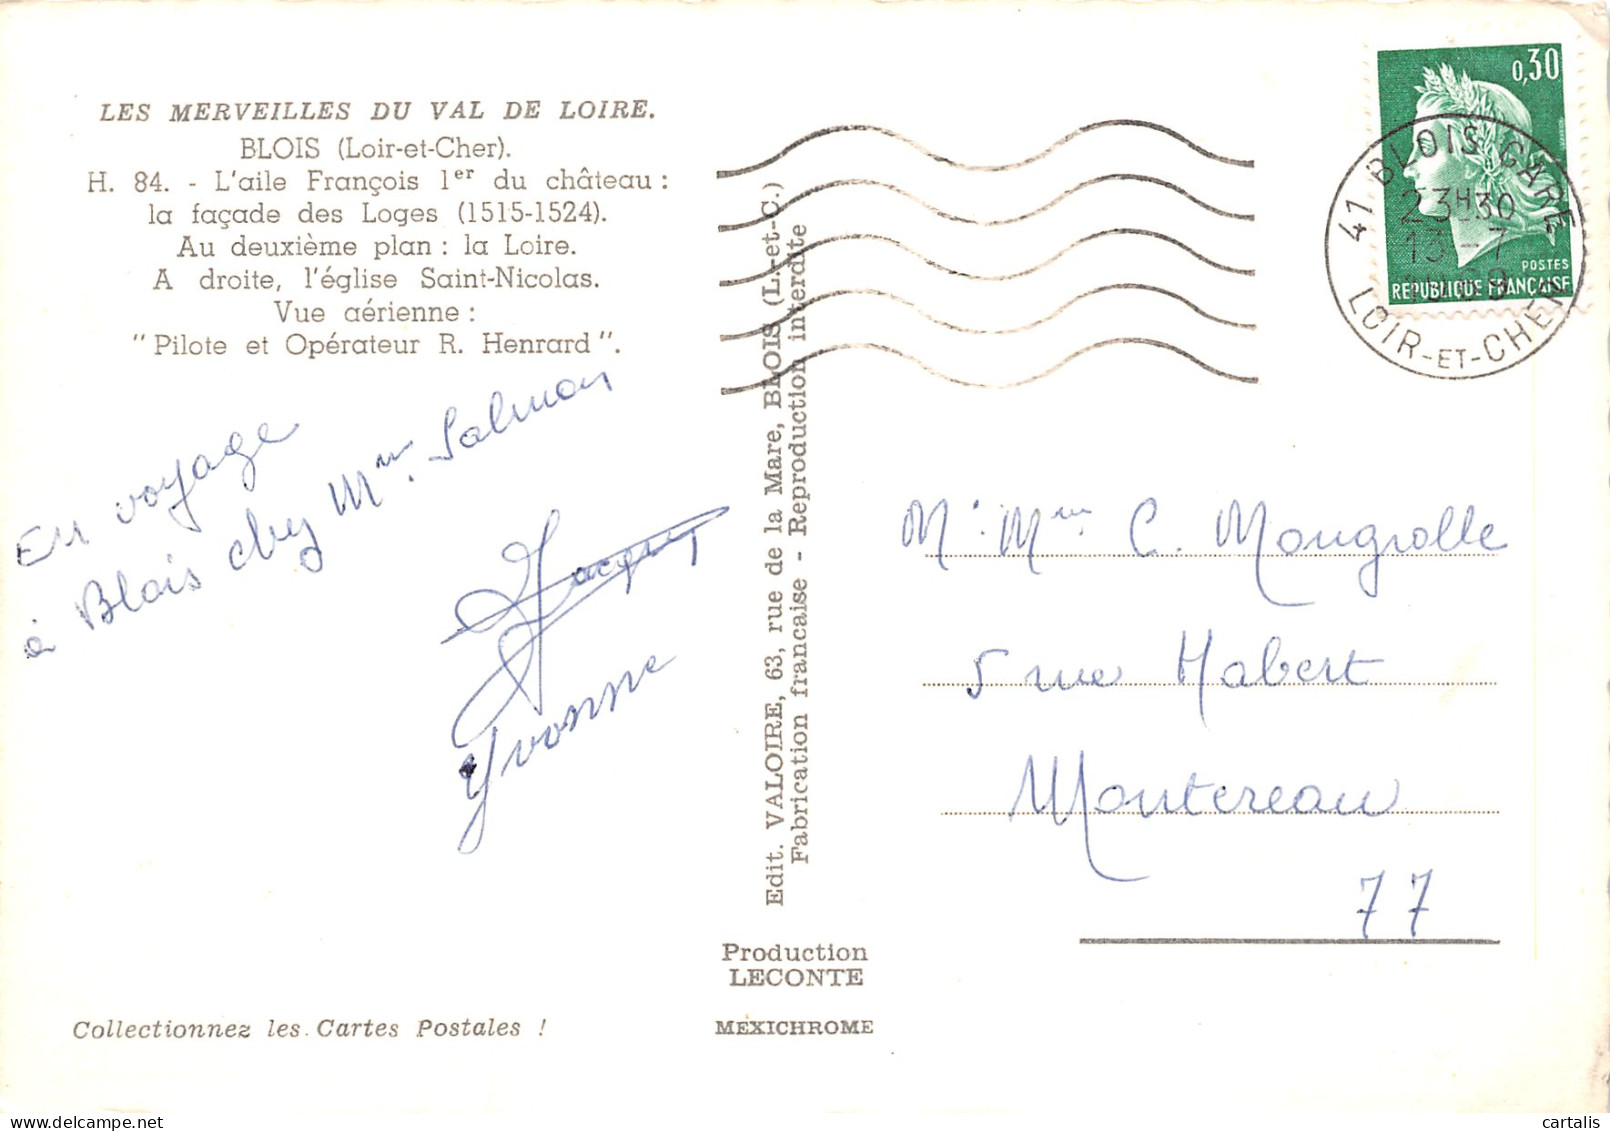 LES MERVEILLES DU VAL DE LOIRE.
BLOIS (Loir-et-Cher).
H. 84. - L'aile François 1er du château :
la façade des Loges (1515-1524).
Au deuxième plan : la Loire.
A droite, l'église Saint-Nicolas.
Vue aérienne :
"Pilote et Opérateur R. Henrard".
En voyage
à Blois chez Mme Salmon
Jacques
Yvonne
Collectionnez les Cartes Postales !
Edit. VALOIRE, 63, rue de la Mare, BLOIS (L.-et-C.)
Fabrication francaise - Reproduction interdite
Production
LECONTE
MEXICHROME
0,30
POSTES
REPUBLIQUE FRANÇAISE
41 BLOIS GARE
23H30
13-7
1969
LOIR-ET-CHER
Mr. Mme C. Mougrolle
5 rue Habert
Montereau
77
cartalis